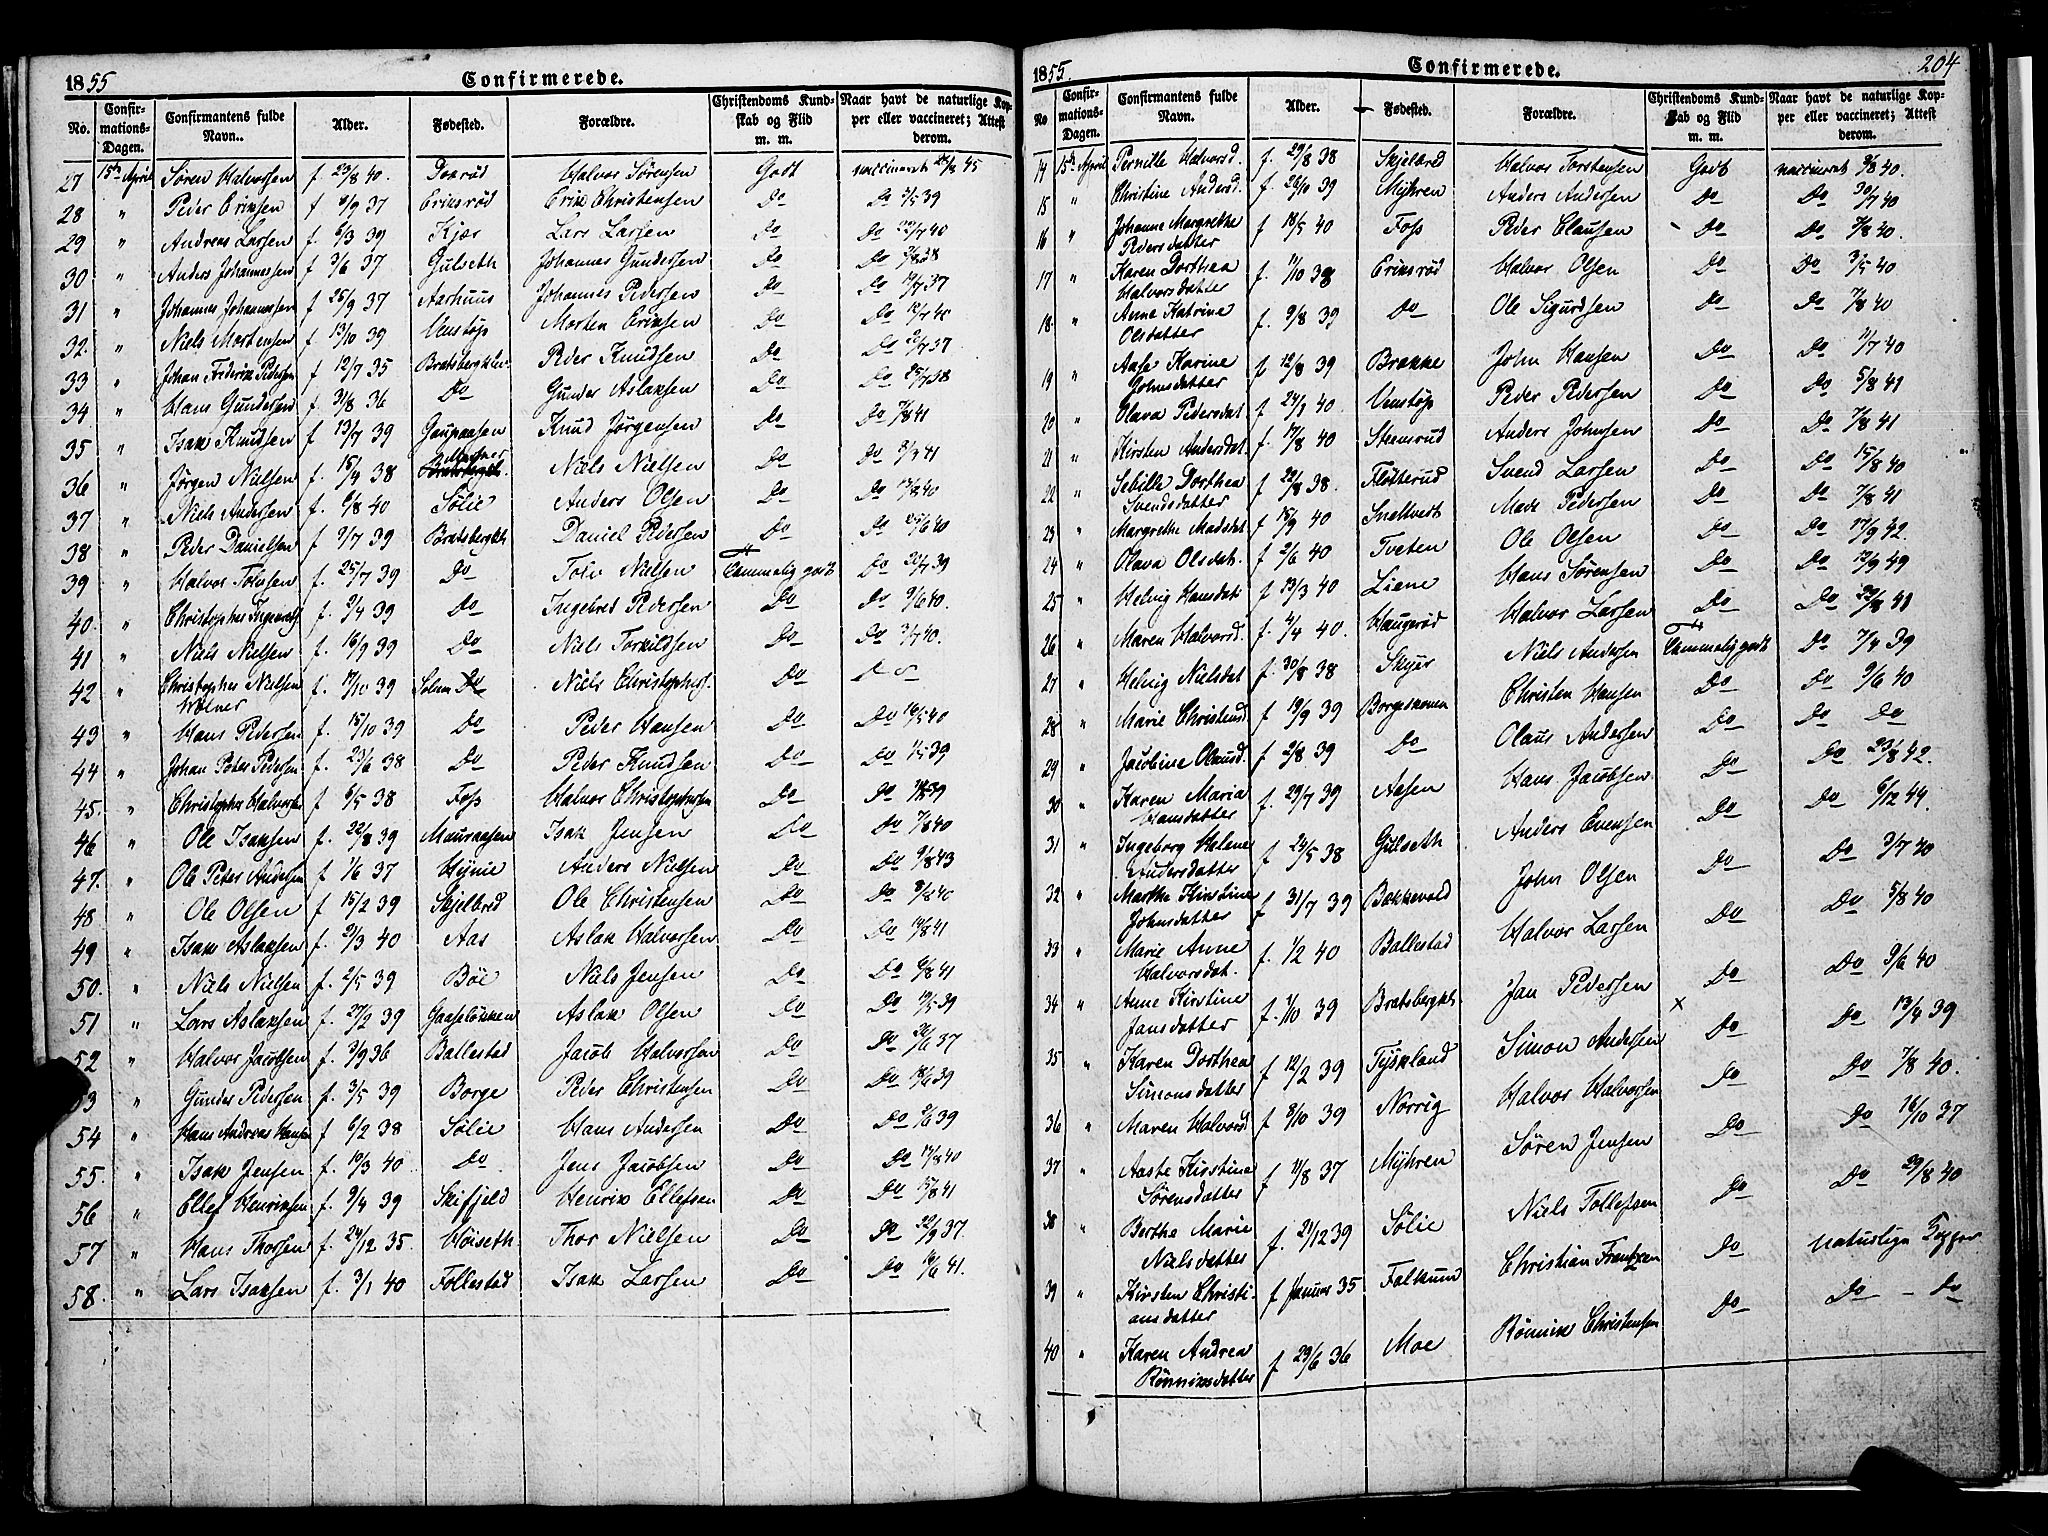 1855 Confirmerede.
No. Confirmations-Dagen. Confirmantens fulde Navn. Alder. Fødested. Forældre. Christendoms Kundskab og Flid m. m. Naar havt de naturlige Kopper eller vaccineret; Attest derom.
27 15de April Søren Halvorsen f 23/8 40. Halvor Sørensen Godt vaccineret 45
28 " Peder Eriksen f 37 Eriksrød Erik Christensen Do Do 39
29 " Andreas Larsen f. 6/3 39 Kjær Lars Larsen Do Do 40
30 " Anders Johannesen f 3/6 37 Gulseth Johannes Gundersen Do Do 38
31 " Johannes Johannesen f 25/9 37 Aarhuus Johannes Pedersen Do Do 37
32. " Niels Mortensen f 13/10 39 Venstøp Morten Eriksen Do Do 40
33 " Johan Frederik Pedersen f 12/7 35 Bratsbergkl. Peder Knudsen Do Do 37
34 " Hans Gundersen f 31/8 36 Do Gunder Aslaksen Do Do 38
35 " Isak Knudsen f 13/7 39 Gaupaasen Knud Jørgensen Do Do 7/8 41
36 " Jørgen Nielsen f 38 Niels Nielsen Do Do 41
37 " Niels Andersen f. 6/8 40 Sølie Anders Olsen Do Do 40
38 " Peder Danielsen f 39 Bratsbergkl. Daniel Pedersen Do Do 40
39 " Halvor Tolvsen f. 25/7 39 Do Tolv Nielsen Temmelig godt Do 39
40. " Christopher f. 39 Do Ingebret Pedersen Do Do 9/6 40.
41 " Niels Nielsen f. 16/9 39 Do Niels Torkildsen Do Do 3/7 40.
42 " Christopher Nielsen Wølner f. 39 Solum Niels Christophers. Do Do
43 " Hans Pedersen f. 15/10 39 Do Peder Hansen Do Do 16/5 40
44 " Johan Peter Pedersen f. 23/6 38 Do Peder Knudsen Do Do 39
45. " Christopher Halvorsen f 6/5 38 Foss Halvor Christophersen Do Do 39
46 " Ole Isaksen f. 22/8 39 Mauraasen Isak Jensen Do Do 7/8 40
47. " Ole Peter Andersen f 1/6 37 Hynie Anders Nielsen Do Do 43
48 " Ole Olsen f 15/2 39 Skjelbred Ole Christensen Do Do 40
49 " Isak Aslaksen f. 21/3 40 Aas Aslak Halvorsen Do Do 41
50. " Niels Nielsen f. 2/5 39 Böe Niels Jensen Do Do 6/8 41
51 " Lars Aslaksen f. 27/2 39 Gaaseløkken Aslak Olsen Do Do 39
52 " Halvor Jacobsen f. 3/9 36 Ballestad Jacob Halvorsen Do Do 37
53 " Gunder Pedersen f. 3/5 39 Borge Peder Christensen Do Do 39
54 " Hans Andreas Hansen f 6/2 38 Sølie Hans Andersen Do Do 39
55. " Isak Jensen f. 19/3 40. Do Jens Jacobsen Do Do 17/8 40
56 " Ellef Henriksen f. 9/4 39 Skifjeld Henrik Ellefsen Do Do 41
57 " Hans Thorsen f. 24/12 35. Høiseth. Thor Nielsen Do Do 22/9 37.
58. " Lars Isaksen f. 3/1 40 Follestad Isak Larsen Do Do 16/6 41.
1855. Confirmerede. 204
No Confirmations-Dagen. Confirmantens fulde Navn. Alder. Fødested. Forældre. Christendoms Kundskab og Flid m. m. Naar havt de naturlige Kopper eller vaccineret; Attest derom.
14 15de April Pernille Halvorsd. f. 29/8 38 Skjelbred Halvor Torstensen Godt vaccineret 40.
15 " Christine Andersd. f. 26/10 39 Myhren Anders Andersen Do Do 30/7 40
16 " Johanne Margrethe Pedersdatter f 18/5 40 Foss Peder Clausen Do Do 7/8 40.
17 " Karen Dorthea Halvorsdatter f. 1/10 38 Eriksrød Halvor Olsen Do Do 3/5 40
18. " Anne Katrine Olsdatter f. 9/8 39 Do Ole Sigurdsen Do Do 7/8 40
19 " Aase Karine Johnsdatter f 12/8 39 Brække John Hansen Do Do 40
20 " Olava Pedersdat. f 40. Venstøp Peder Pedersen Do Do 5/8 41
21 " Kirsten Andersdat. f. 17/8 40 Steensrud Anders Johnsen Do Do 7/8 41
22 " Sebille Dorthea Svendsdatter f 22/8 38. Fløtterud Svend Larsen Do Do 15/8 40
23 " Margrethe Madsdat. f 15/9 40 Mads Pedersen Do Do 7/8 41
24 " Olava Olsdat. f 2/6 40 Tveten Ole Olsen Do Do 17/9 42.
25 " Helvig Hansdat. f 13/3 40 Liane Hans Sørensen Do Do 12/9 49
26 " Maren Halvorsd. f. 4/4 40. Haugerød Halvor Larsen Do Do 41
27 " Helvig Nielsdat f. 30/8 38 Niels Andersen Temmelig godt Do 7/4 39
28 " Marie Christensd. f 19/9 39 Borgeskoven Christen Hansen Do Do 9/6 40
29 " Jacobine Olausd. f 2/8 39 Do Olaus Andersen Do Do Do
30 " Karen Maria Hansdatter f. 29/7 39 Aasen Hans Jacobsen Do Do 23/8 42.
31 " Ingeborg Helene Andersdatter f 24/5 38 Gulseth Anders Evensen Do Do 6/12 44.
32 " Marthe Kirstine Johnsdatter f 31/7 39 Bakkevold John Olsen Do Do 3/7 40
33 " Marie Anne Halvorsdat. f. 1/2 40 Ballestad Halvor Larsen Do Do 5/8 40
34 " Anne Kirstine Jansdatter f. 1/10 39 Bratsbergkl. Jan Pedersen Do Do 9/6 40
35 " Karen Dorthea Simonsdatter f 12/2 39 Tyskland Simon Andersen x Do Do 13/4 39
36 " Maren Halvorsd f 8/10 39 Norrig Halvor Halvorsen Do Do 7/8 40.
37 " Aaste Kirstine Sørensdatter f 11/8 37 Myhren Søren Jensen Do Do 16/10 37
38 " Berthe Marie Nielsdatter f. 21/12 39 Sølie Niels Tollefsen Do Do 29/8 40
39 " Kirsten Christiansdatter f Januar 35 Falkum Christian Frantzen Do naturlige Kopper
40 " Karen Andrea Rønnixsdatter f 29/6 36 Moe Rønnix Christensen Do Do - Do